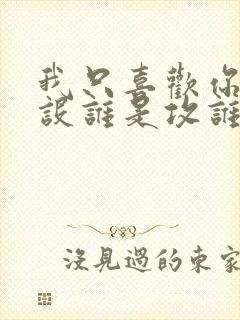 我只喜歡你
設誰是攻誰
沒見過的東家